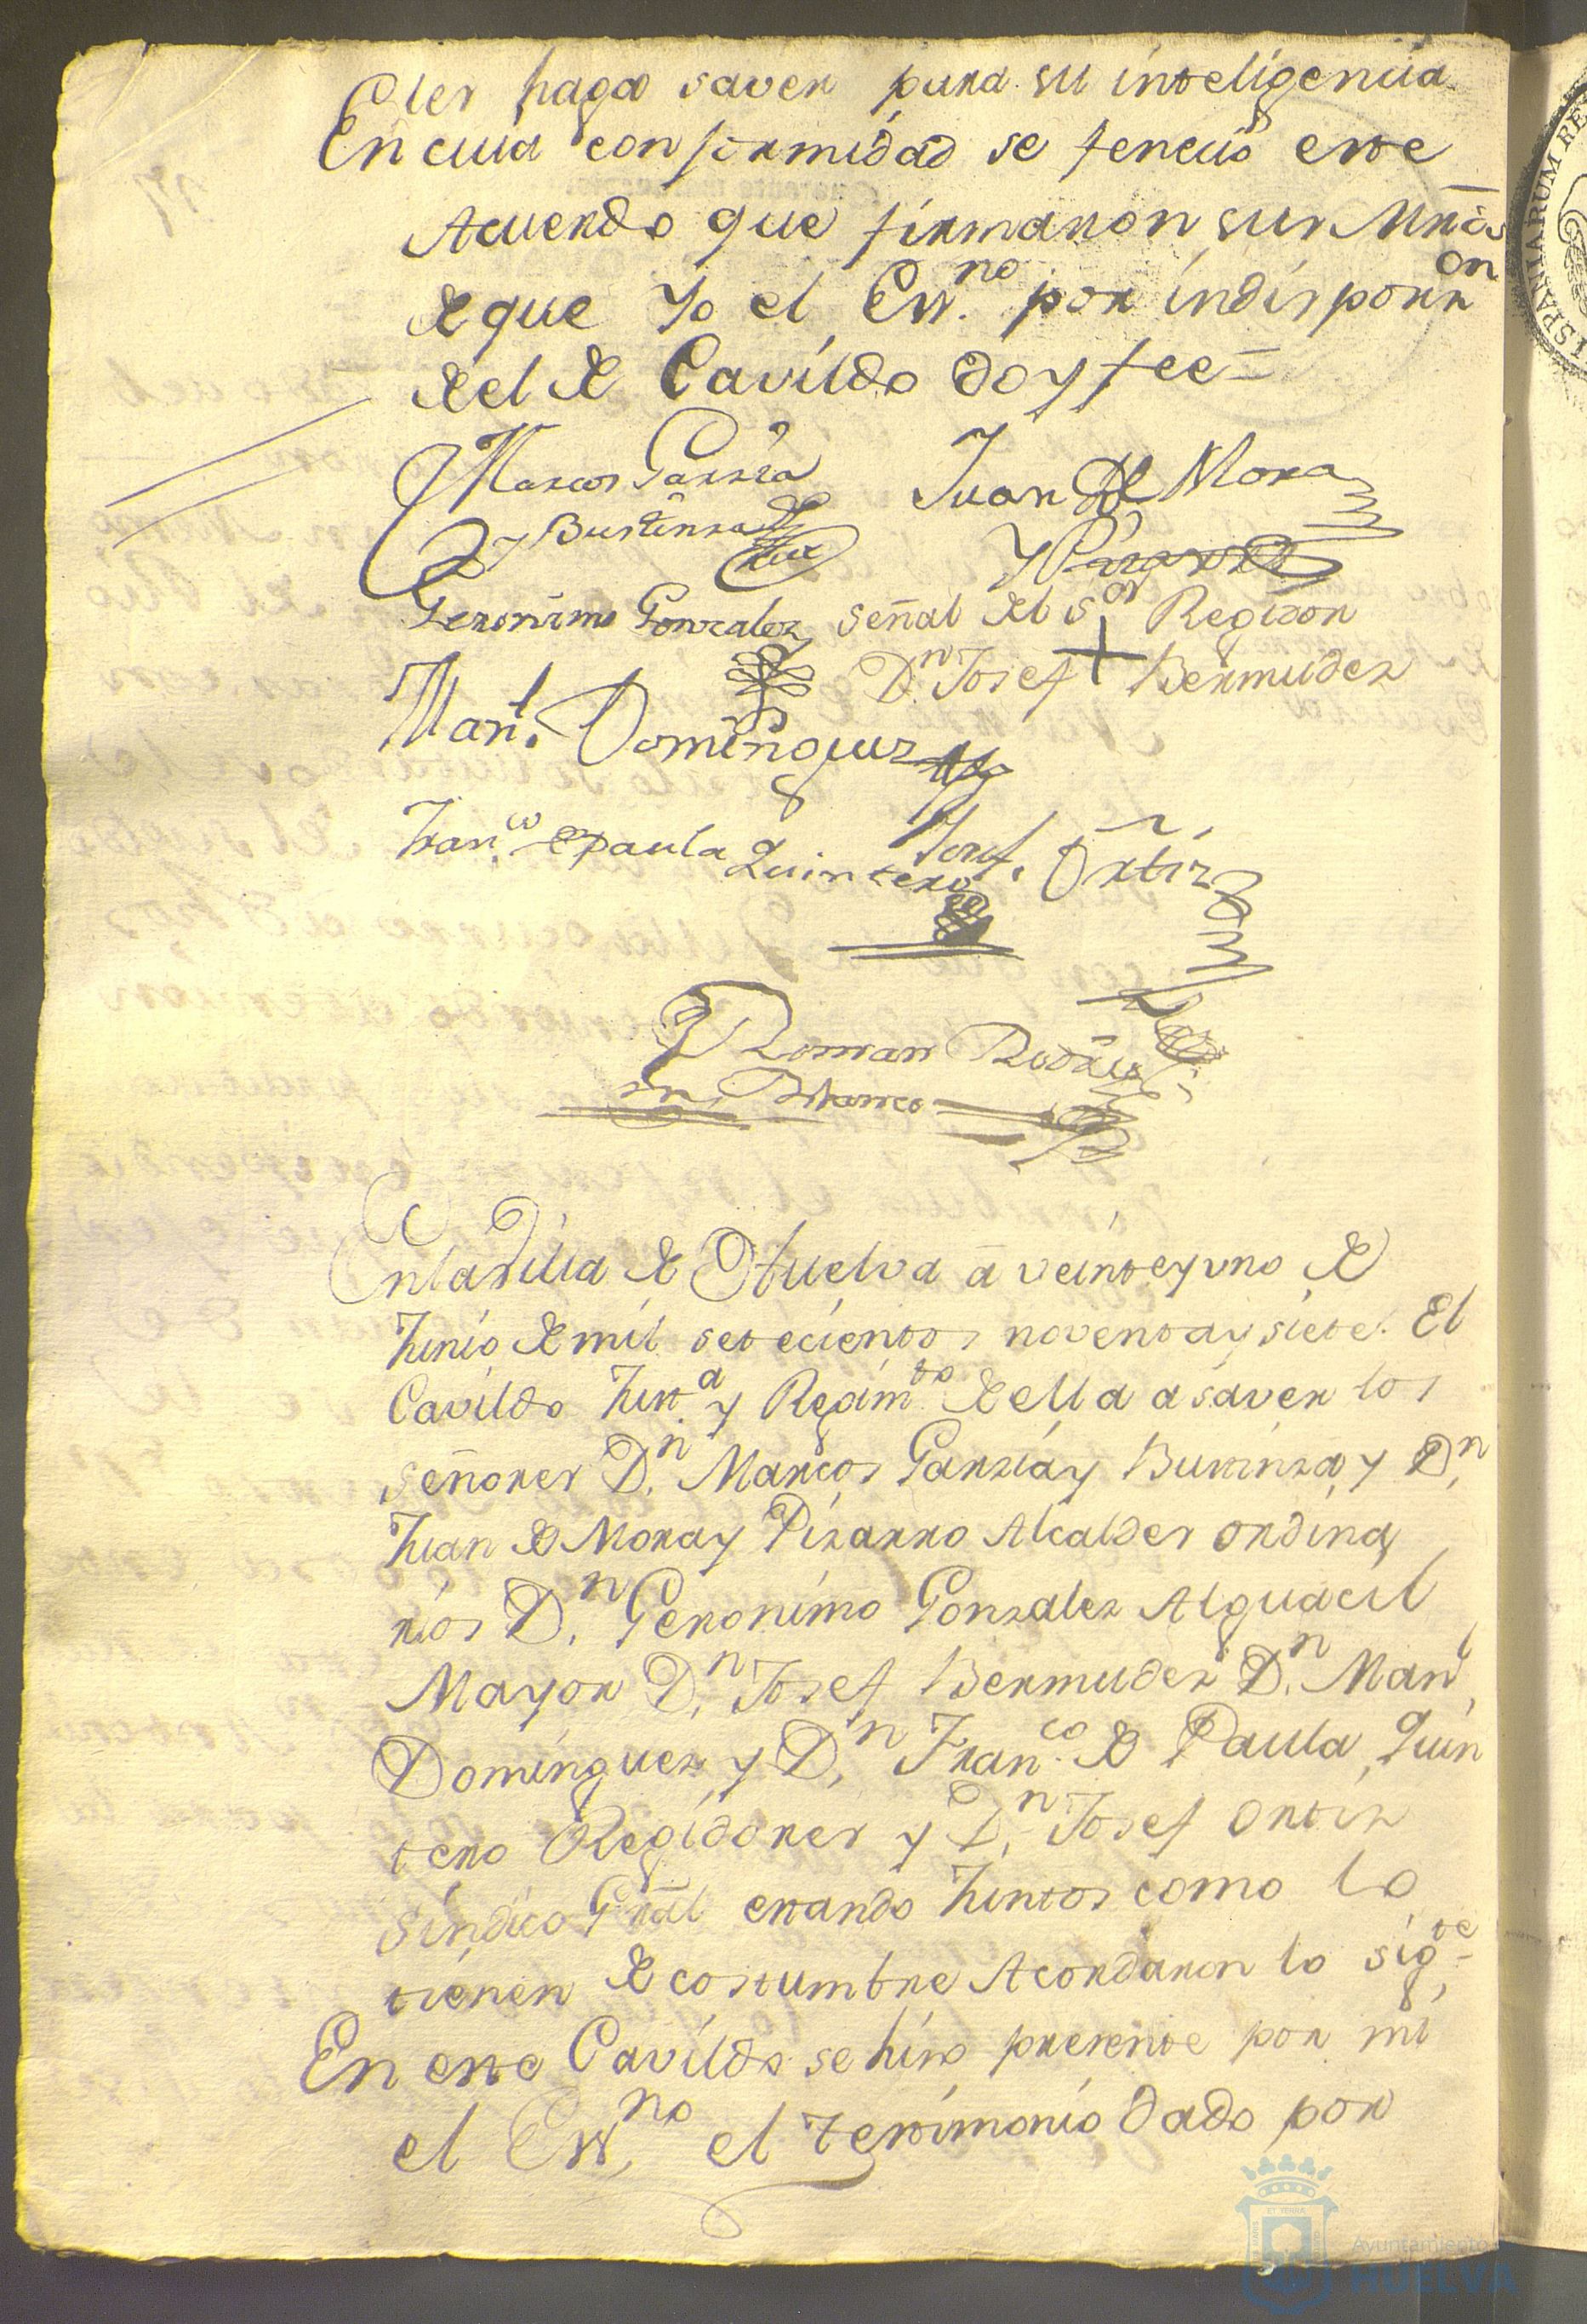 les haga saver para su inteligencia
En cuia conformidad se fenecio este
Acuerdo que firmaron sus Mrds
de que Yo el Essno. por indisposn
del de Cavildo doy fee=
Marcos Garzia
y Bustinza
Juan de Mora
y Pizarro
Geronimo Gonzalez
señal del Sor Regidor
Dn. Josef + Bermudez
Manl. Dominguez
Franco. de Paula Quintero
Josef. Ortiz
Roman Rodrig
Blanco
En la Villa de Huelva a veinte y uno de
Junio de mil setecientos noventa y siete. El
Cavildo Justa. y Regimto. de ella a saver los
señores Dn. Marcos Garzia y Bustinza, y Dn.
Juan de Mora y Pizarro Alcaldes ordina
rios Dn. Geronimo Gonzalez Alguacil
Mayor Dn. Josef Bermudez Dn. Manl.
Dominguez, y Dn. Franco. de Paula Quin
tero Regidores y Dn. Josef Ortiz
sindico Gral estando Juntos como lo
tienen de costumbre Acordaron lo sigte=
En este Cavildo se hizo presente por mi
el Essno. el testimonio dado por
ISPANIARUM RE
Ayuntamiento
HUELVA